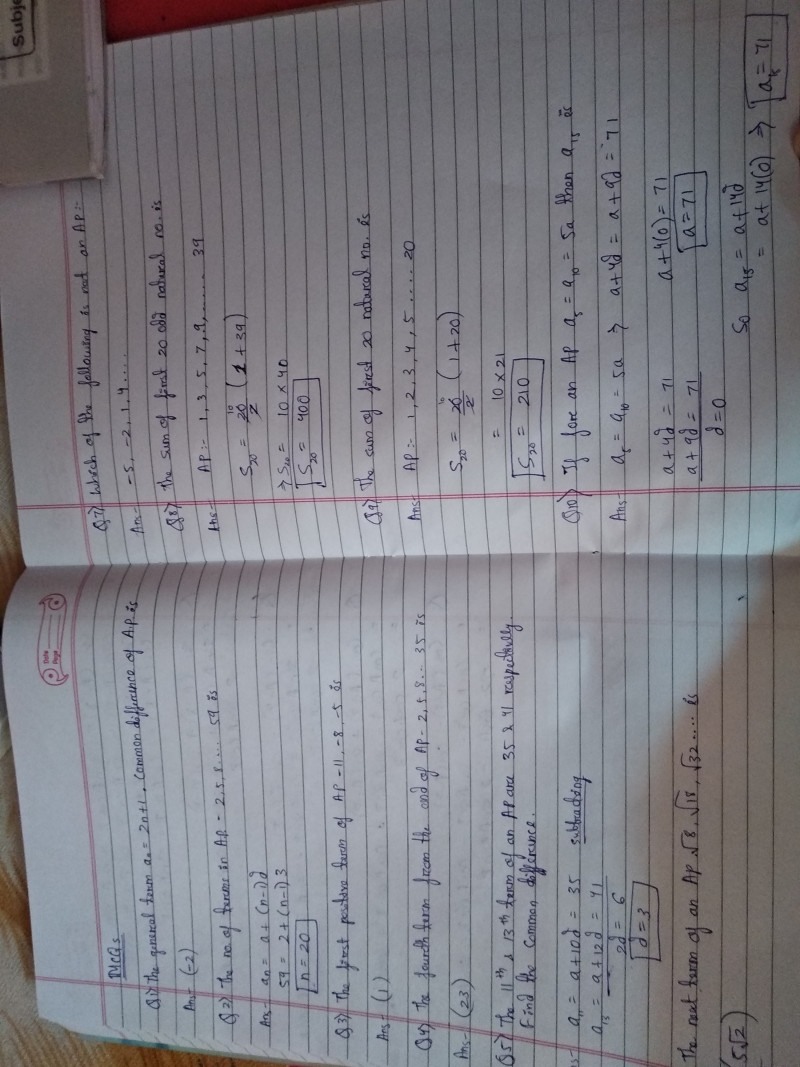 Subje
Date
Page
MCQs
Q1) The general term aₙ = 2n+1, Common difference of A.P is
Ans- (-2)
Q2) The no of terms in A.P - 2, 5, 8 .... 59 is
Ans- aₙ = a + (n-1)d
59 = 2 + (n-1) 3
n = 20
Q3) The first positive term of AP -11, -8, -5 is
Ans- (1)
Q4) The fourth term from the end of AP - 2, 5, 8... 35 is
Ans- (23)
Q5) The 11th & 13th term of an AP are 35 & 41 respectively
Find the Common difference.
a₁₁ = a+10d = 35 subtracting
a₁₃ = a+12d = 41
2d = 6
d = 3
The next term of an AP √8, √18, √32 .... is
(5√2)
Q7) Which of the following is not an AP:-
Ans- -5, -2, 1, 4 ....
Q8) The sum of first 20 odd natural no. is
Ans- AP:- 1, 3, 5, 7, 9, ...... 39
S₂₀ = 20/2 (1 + 39)
10
⇒ S₂₀ = 10 × 40
S₂₀ = 400
Q9) The sum of first 20 natural no. is
Ans AP:- 1, 2, 3, 4, 5 ..... 20
S₂₀ = 20/2 (1+20)
10
= 10 × 21
S₂₀ = 210
Q10) If fore an AP a₅ = a₁₀ = 5a then a₁₅ is
Ans- a₅ = a₁₀ = 5a ⇒ a+4d = a+9d = 71
a+4d = 71 a+4(0) = 71
a+9d = 71 a = 71
d=0
So a₁₅ = a+14d
= a+14(0) ⇒ a₁₅ = 71